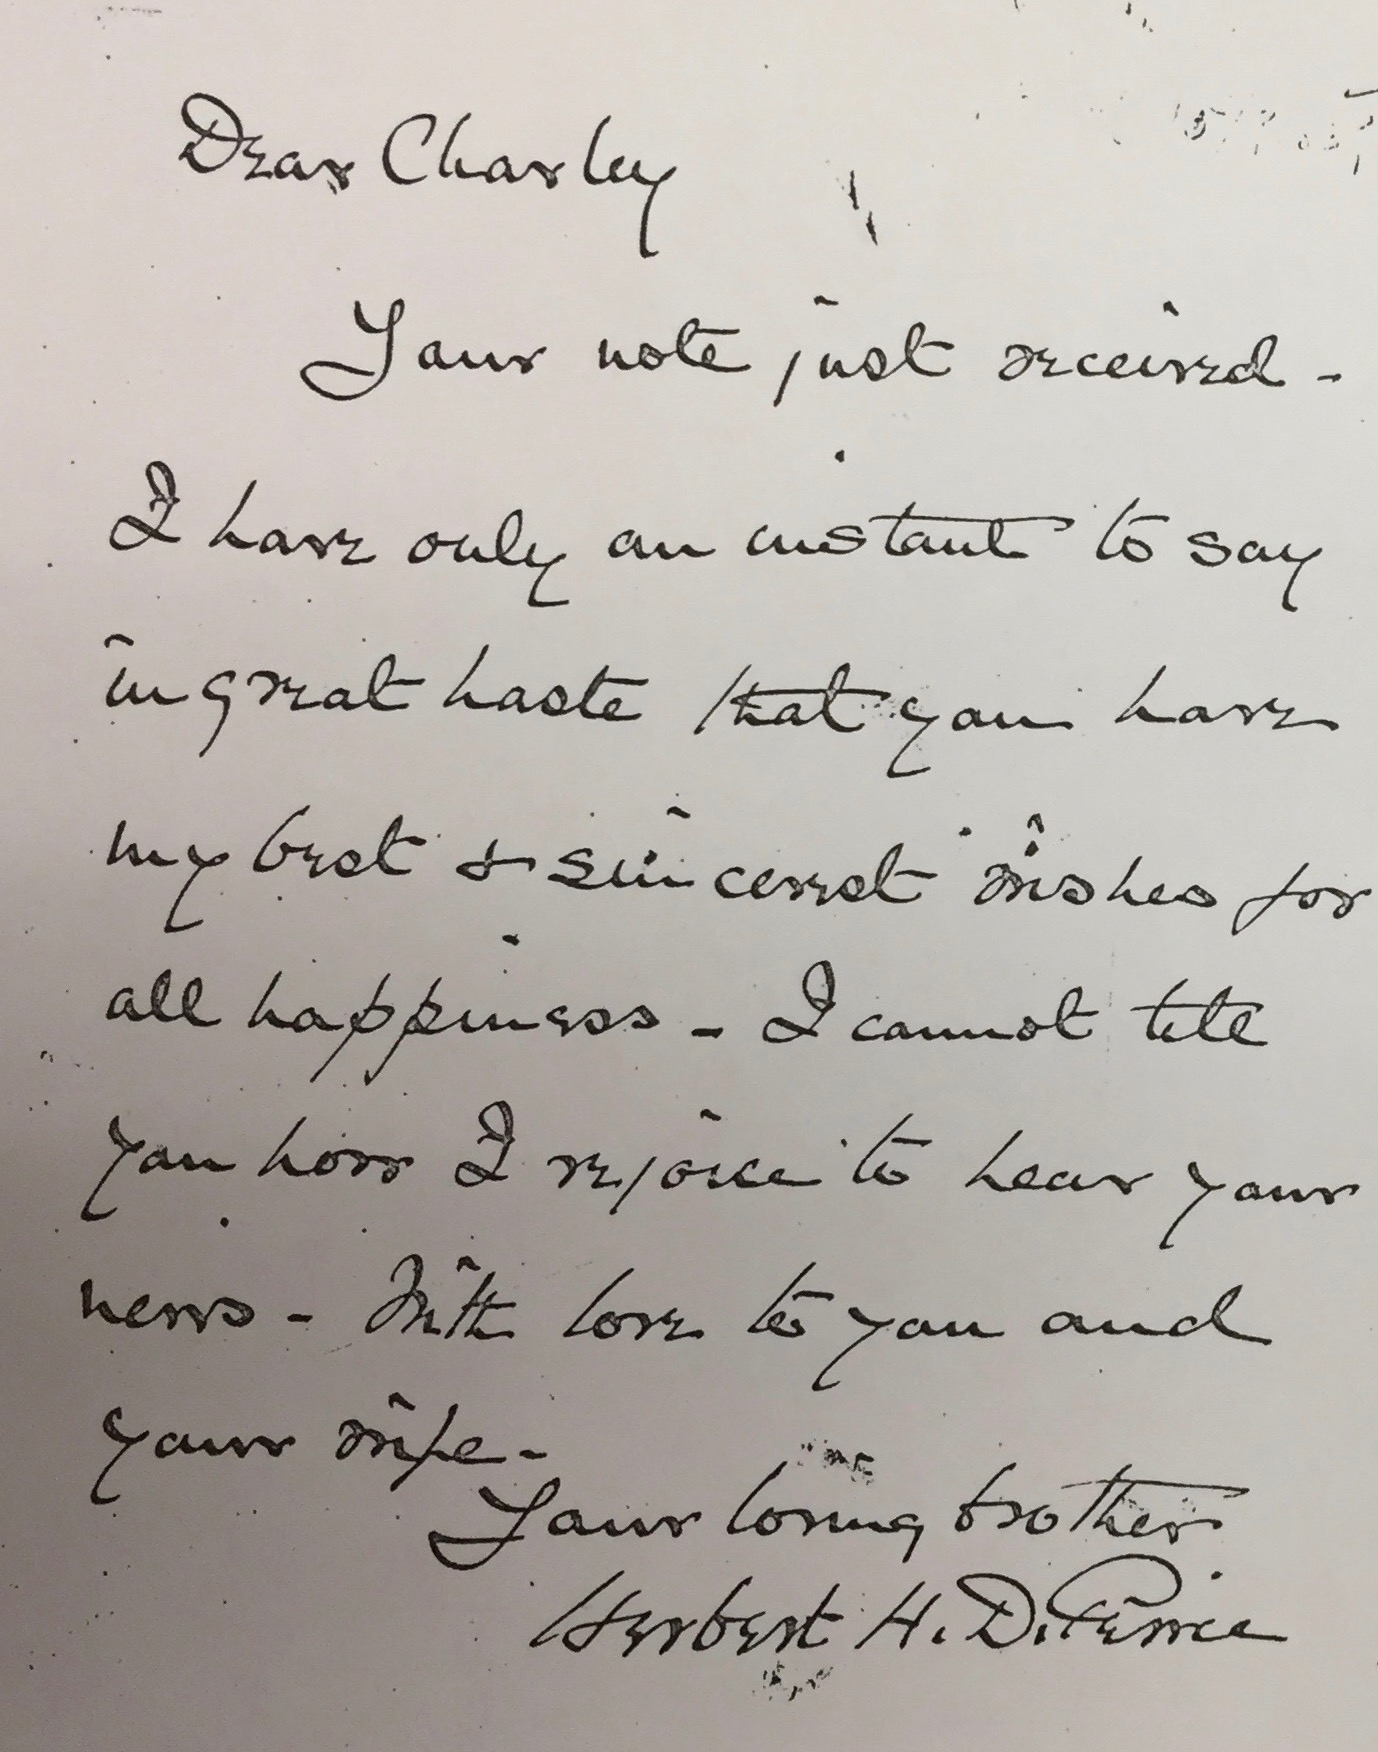 Dear Charley
Your note just received -
I have only an instant to say
in great haste that you have
my best & sincerest wishes for
all happiness - I cannot tell
you how I rejoice to hear your
news - With love to you and
your wife -
Your loving brother
Herbert H. D. Peirce